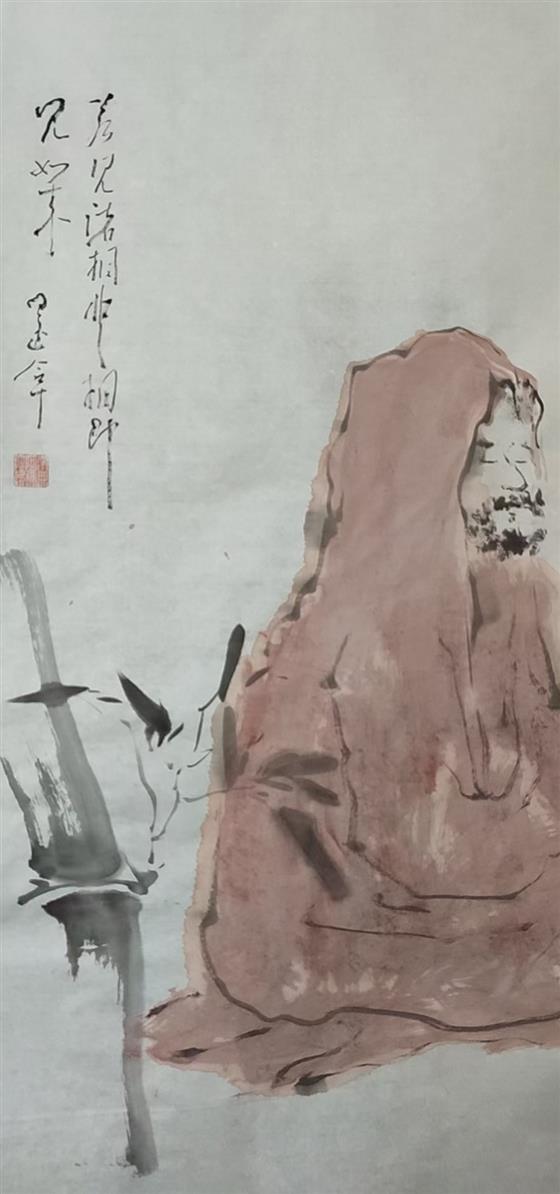 若见诸相非相即
见如来